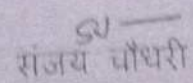 संजय चौधरी